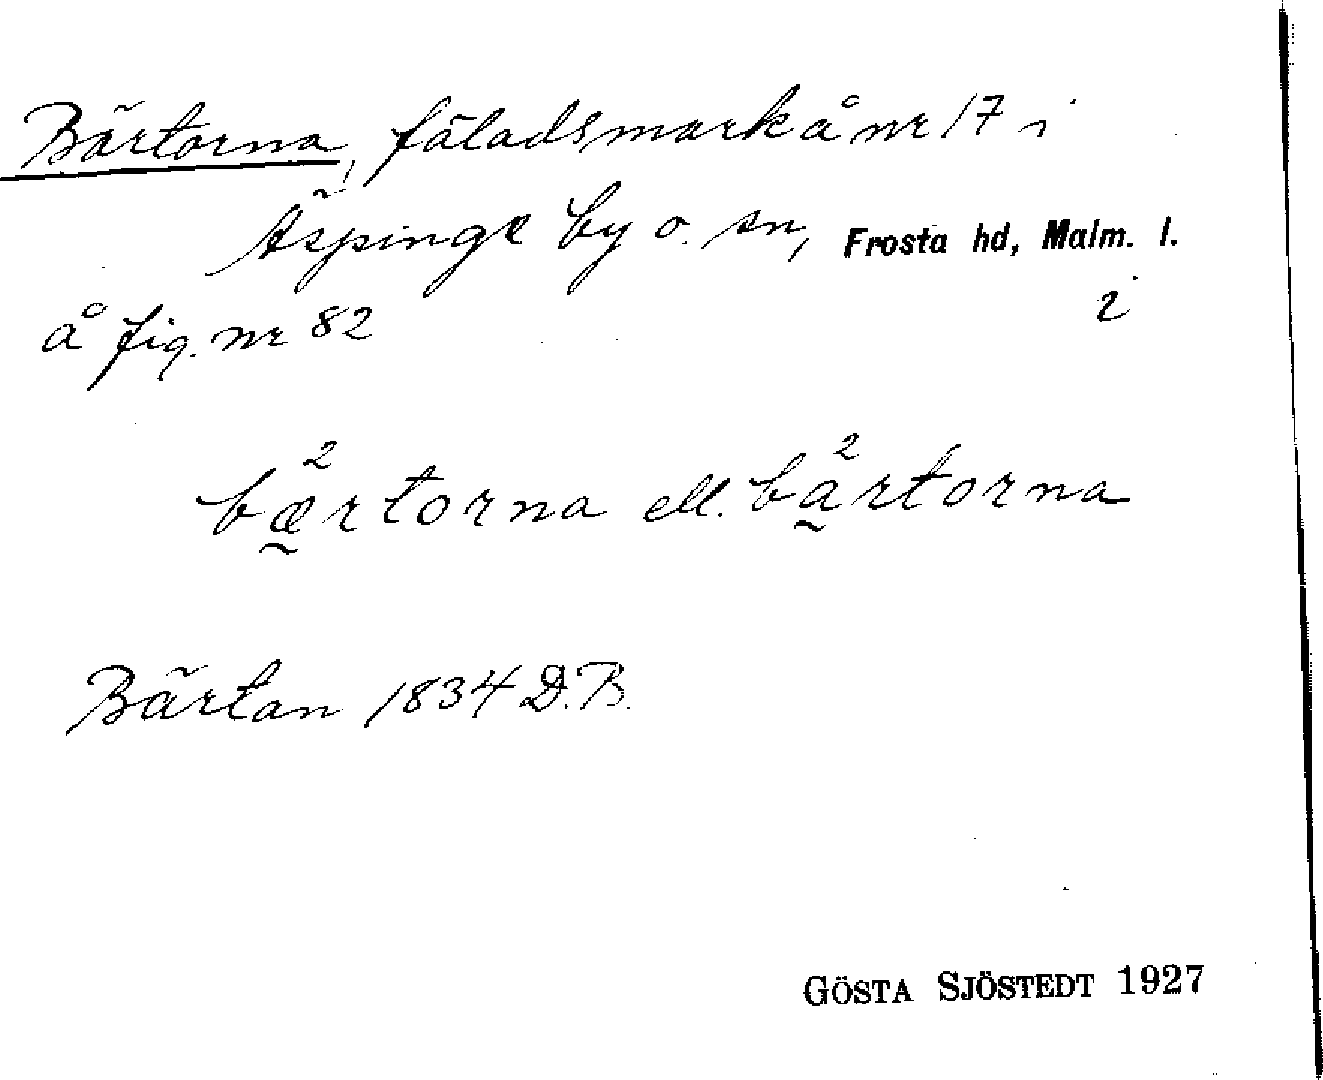 Bärtorna, fäladsmark å nr 17 i
Äspinge by o. sn, Frosta hd, Malm. l.
å fig. nr 82 i
bæ̰²rtorna ell. ba̰²rtorna
Bärtan 1834 D.B.
GÖSTA SJÖSTEDT 1927